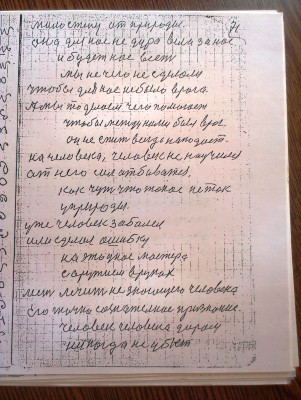 милостыни от природы.
она для нас не дура вела за нас
и будет нас весть
мы не чего не сделали
чтобы для нас не было врага.
А мы то делаем чего помогает
чтобы между нами был враг.
он не спит всегда нападает.
на человека, человек не научился
от него сам отбиватся,
как чуть что такое не так
у природы.
уже человек заболел
или сделал ошибку
на это уже мастера
с оружием в руках
лечит не знающего человека
Его только сознательное признание.
человек человека даром
никогда не убьет